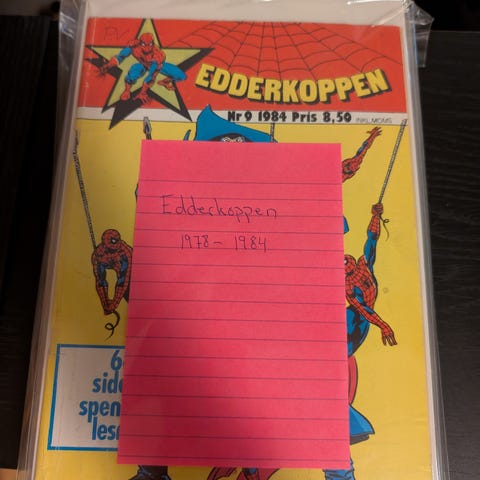 EDDERKOPPEN
Nr 9 1984 Pris 8,50 INKL.MOMS
Edderkoppen
1978-1984
6
side
spen
les